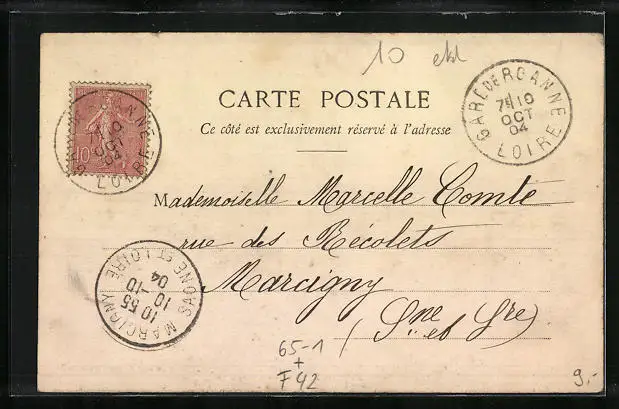 10 ekl
CARTE POSTALE
Ce côté est exclusivement réservé à l'adresse
GARE DE ROANNE
7E 10
OCT
04
LOIRE
ROANNE
10
OCT
04
LOIRE
10
Mademoiselle Marcelle Comte
rue des Récolets
Marcigny
(Sne et Lre)
MARCIGNY
10 55
10-10
04
SAONE ET LOIRE
65-1
+
F42
9,-